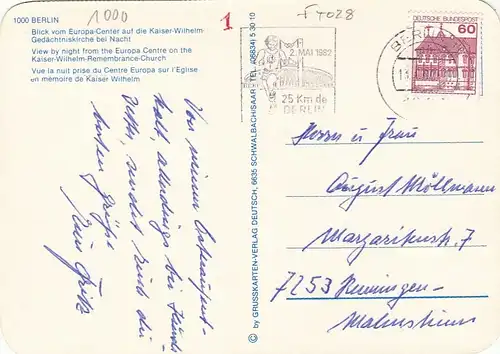 1000 BERLIN
1000
1
F4028
Blick vom Europa-Center auf die Kaiser-Wilhelm
Gedächtniskirche bei Nacht
View by night from the Europa Centre on the
Kaiser-Wilhelm-Remembrance-Church
Vue la nuit prise du Centre Europa sur l'Eglise
en mémoire de Kaiser Wilhelm
Von meiner
kalt, allerdings bei
sendet Euch die
besten Grüße
Fritz
© by GRUSSKARTEN-VERLAG DEUTSCH, 6635 SCHWALBACH/SAAR · TEL. (06834) 5 30 10
2. MAI 1982
25 Km de
BERLIN
BERLIN
DEUTSCHE BUNDESPOST
60
Herrn u. Frau
August Möllmann
Margaritenstr. 7
7253 Renningen-
Malmsheim